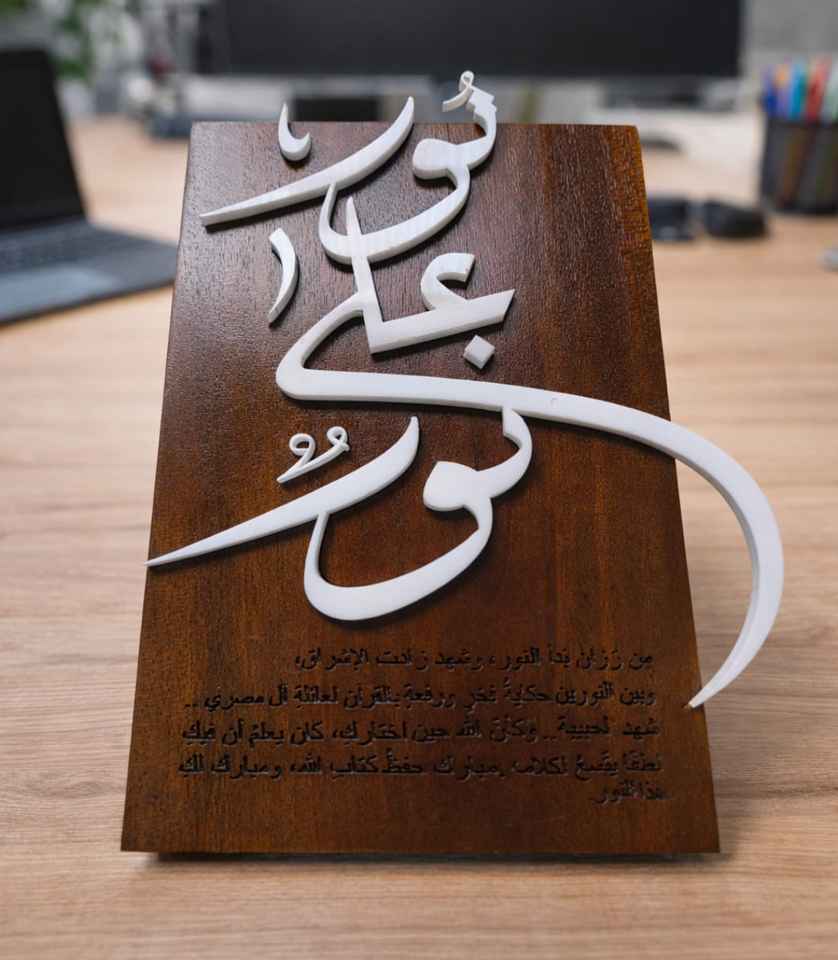 نور
على
نور
مِن رَزان بَدأ النور، وشهد زادت الإشراق،
وبين النورين حكايةُ فخرٍ ورفعةٍ بالقرآن لعائلة آل مصري ..
شهد الحبيبة.. وكأن الله حين اختارك، كان يعلمُ أن فيكِ
لطفًا يتّسعُ لكلامه مبارك حفظُ كتاب الله، ومبارك لكِ
هذا النور.